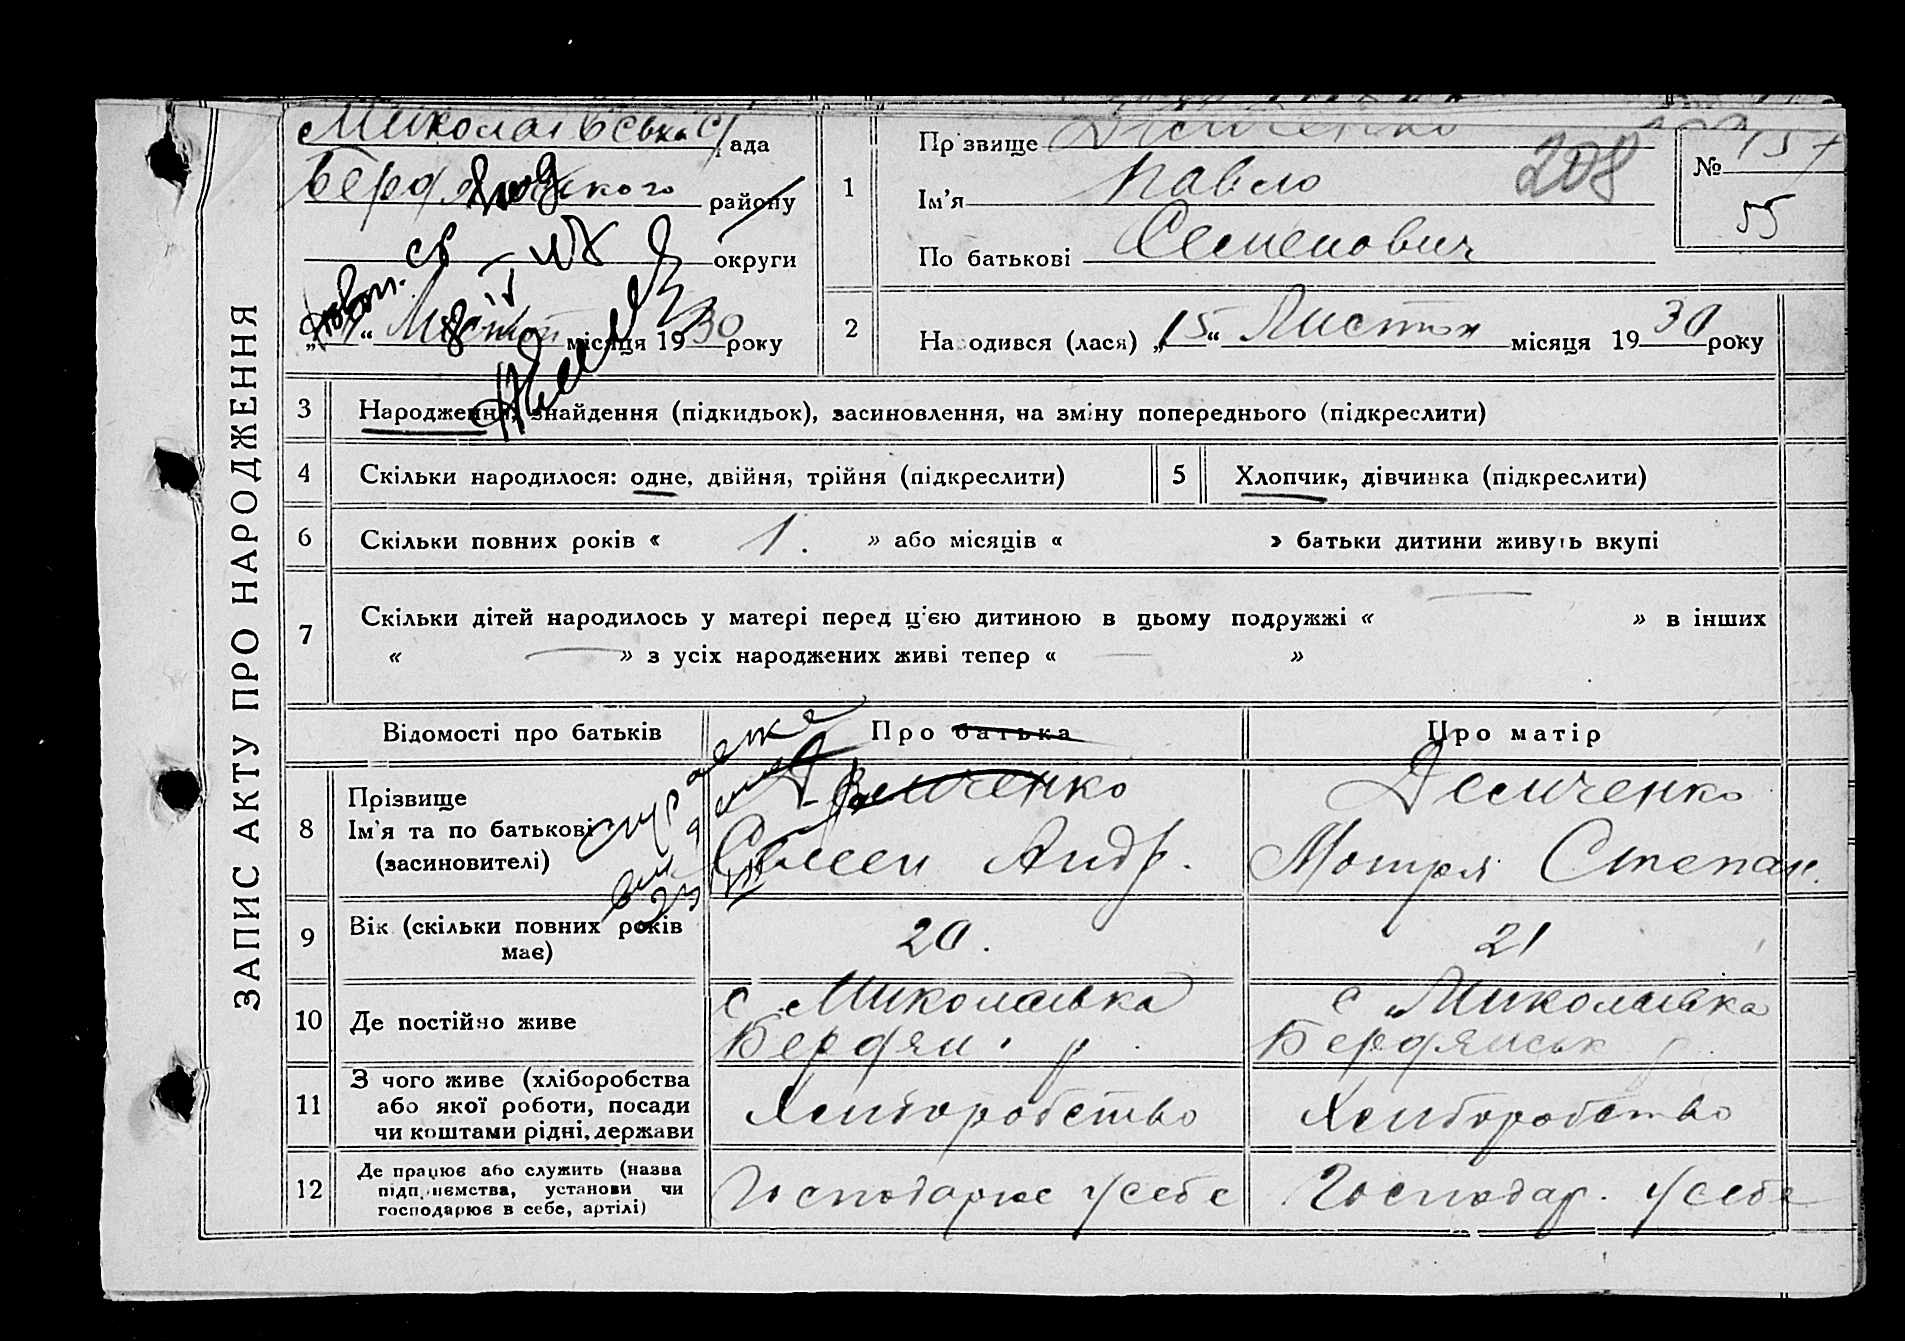 ЗАПИС АКТУ ПРО НАРОДЖЕННЯ
Миколаївська с/рада
Бердянського району
округи
Листоп місяця 1930 року
1
Прізвище Демченко
Ім'я Павло
По батькові Семенович
208
№ 157
55
2
Народився (лася) „15“ Листоп місяця 1930 року
3 Народження, знайдення (підкидьок), засиновлення, на зміну попереднього (підкреслити)
4 Скільки народилося: одне, двійня, трійня (підкреслити)
5 Хлопчик, дівчинка (підкреслити)
6 Скільки повних років « 1. » або місяців « » батьки дитини живуть вкупі
7 Скільки дітей народилось у матері перед ц'єю дитиною в цьому подружжі « — » в інших
« — » з усіх народжених живі тепер « — »
Відомості про батьків Про батька Про матір
8 Прізвище
Ім'я та по батькові
(засиновителі)
Демченко
Семен Андр.
Демченко
Мотря Степан.
9 Вік (скільки повних років
має)
20.
21
10 Де постійно живе
с Миколаївка
Бердян. р
с Миколаївка
Бердянськ р.
11 З чого живе (хліборобства
або якої роботи, посади
чи коштами рідні, держави
Хліборобство
Хліборобство
12 Де працює або служить (назва
підприємства, установи чи
господарює в себе, артілі)
Господарює у себе
Господар. у себе